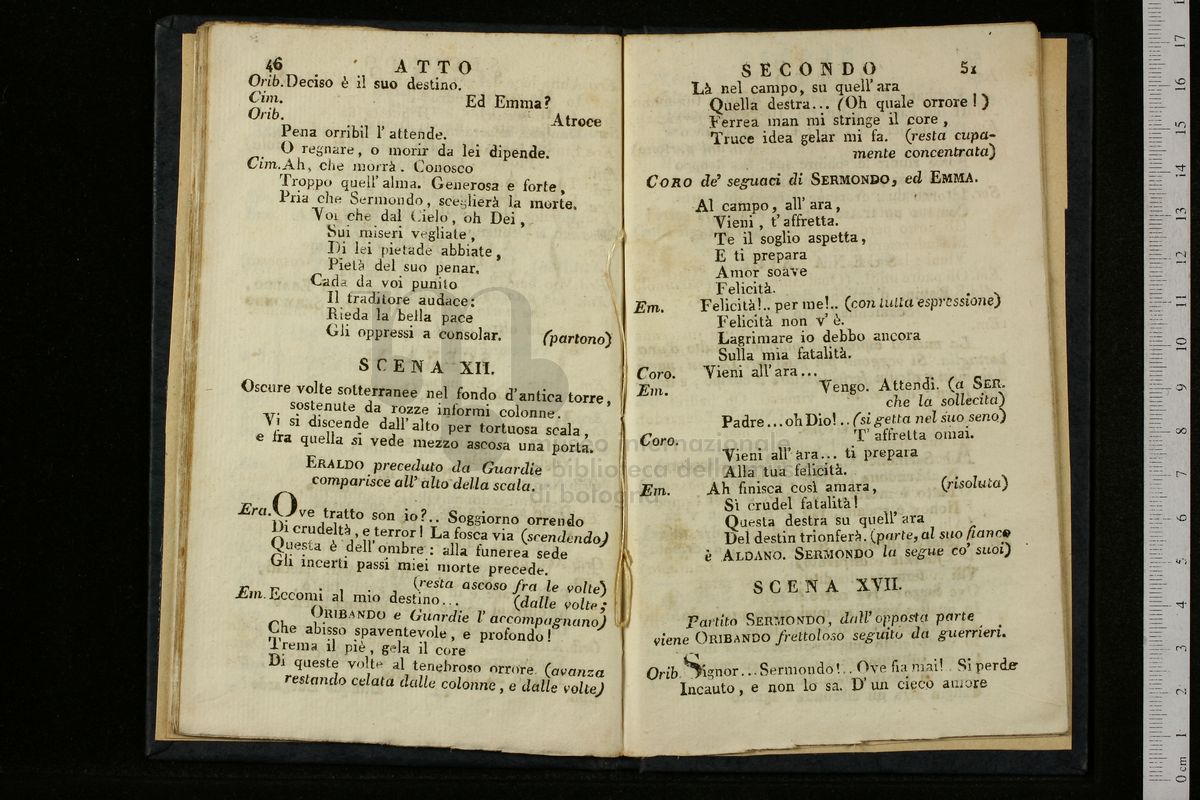 46 ATTO
Orib. Deciso è il suo destino.
Cim. Ed Emma?
Orib. Atroce
Pena orribil l' attende.
O regnare, o morir da lei dipende.
Cim. Ah, che morrà. Conosco
Troppo quell' alma. Generosa e forte,
Pria che Sermondo, sceglierà la morte.
Voi che dal Cielo, oh Dei,
Sui miseri vegliate,
Di lei pietade abbiate,
Pietà del suo penar.
Cada da voi punito
Il traditore audace:
Rieda la bella pace
Gli oppressi a consolar. (partono)
SCENA XII.
Oscure volte sotterranee nel fondo d'antica torre,
sostenute da rozze informi colonne.
Vi si discende dall' alto per tortuosa scala,
e fra quella si vede mezzo ascosa una porta.
ERALDO preceduto da Guardie
comparisce all' alto della scala.
Era. Ove tratto son io?.. Soggiorno orrendo
Di crudeltà, e terror! La fosca via (scendendo)
Questa è dell' ombre: alla funerea sede
Gli incerti passi miei morte precede.
(resta ascoso fra le volte)
Em. Eccomi al mio destino... (dalle volte;
ORIBANDO e Guardie l' accompagnano)
Che abisso spaventevole, e profondo!
Trema il piè, gela il core
Di queste volte al tenebroso orrore. (avanza
restando celata dalle colonne, e dalle volte)
SECONDO 51
Là nel campo, su quell' ara
Quella destra... (Oh quale orrore!)
Ferrea man mi stringe il core,
Truce idea gelar mi fa. (resta cupa-
mente concentrata)
CORO de' seguaci di SERMONDO, ed EMMA.
Al campo, all' ara,
Vieni, t' affretta.
Te il soglio aspetta,
E ti prepara
Amor soave
Felicità.
Em. Felicità!.. per me!.. (con tutta espressione)
Felicità non v' è.
Lagrimare io debbo ancora
Sulla mia fatalità.
Coro. Vieni all' ara...
Em. Vengo. Attendi. (a SER.
che la sollecita)
Padre... oh Dio!.. (si getta nel suo seno)
Coro. T' affretta omai.
Vieni all' ara... ti prepara
Alla tua felicità.
Em. Ah finisca così amara, (risoluta)
Sì crudel fatalità!
Questa destra su quell' ara
Del destin trionferà. (parte, al suo fianco
è ALDANO. SERMONDO la segue co' suoi)
SCENA XVII.
Partito SERMONDO, dall' opposta parte
viene ORIBANDO frettoloso seguito da guerrieri.
Orib. Signor... Sermondo!.. Ove fia mai!.. Si perde
Incauto, e non lo sa. D' un cieco amore
museo internazionale
biblioteca della
di bologna
0 cm 1 2 3 4 5 6 7 8 9 10 11 12 13 14 15 16 17